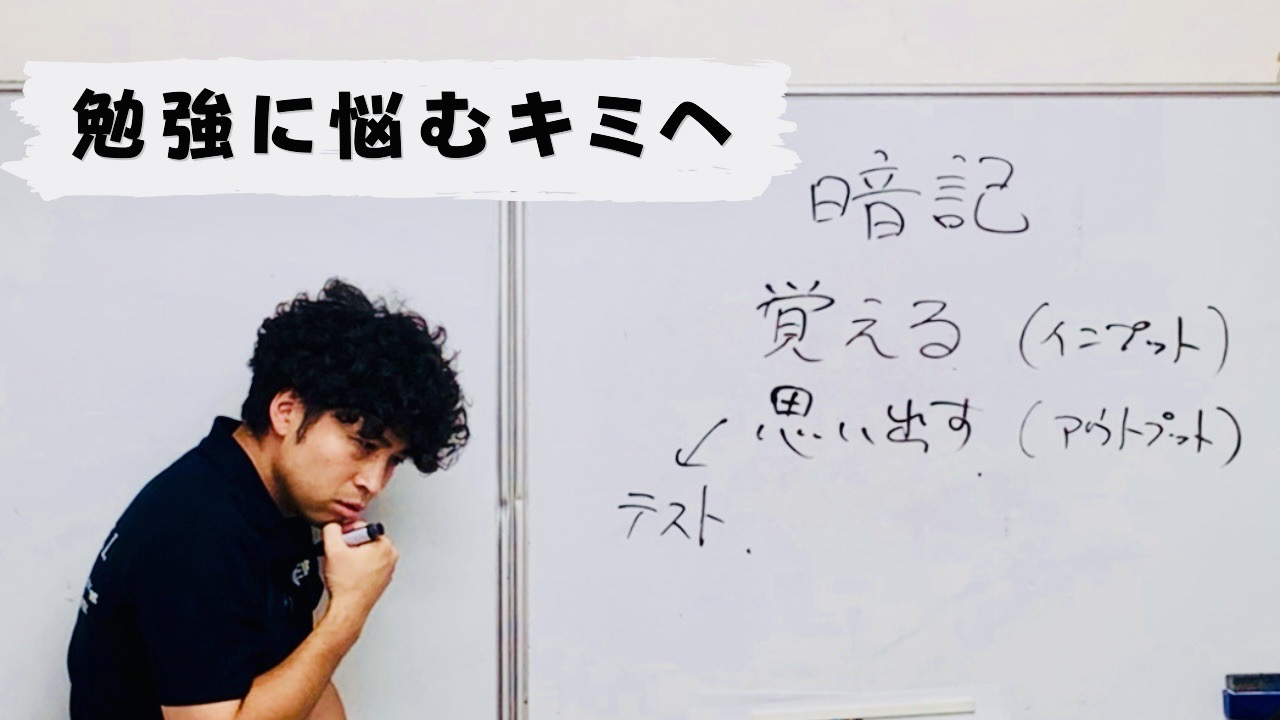 勉強に悩むキミへ
暗記
覚える (インプット)
思い出す (アウトプット)
テスト.